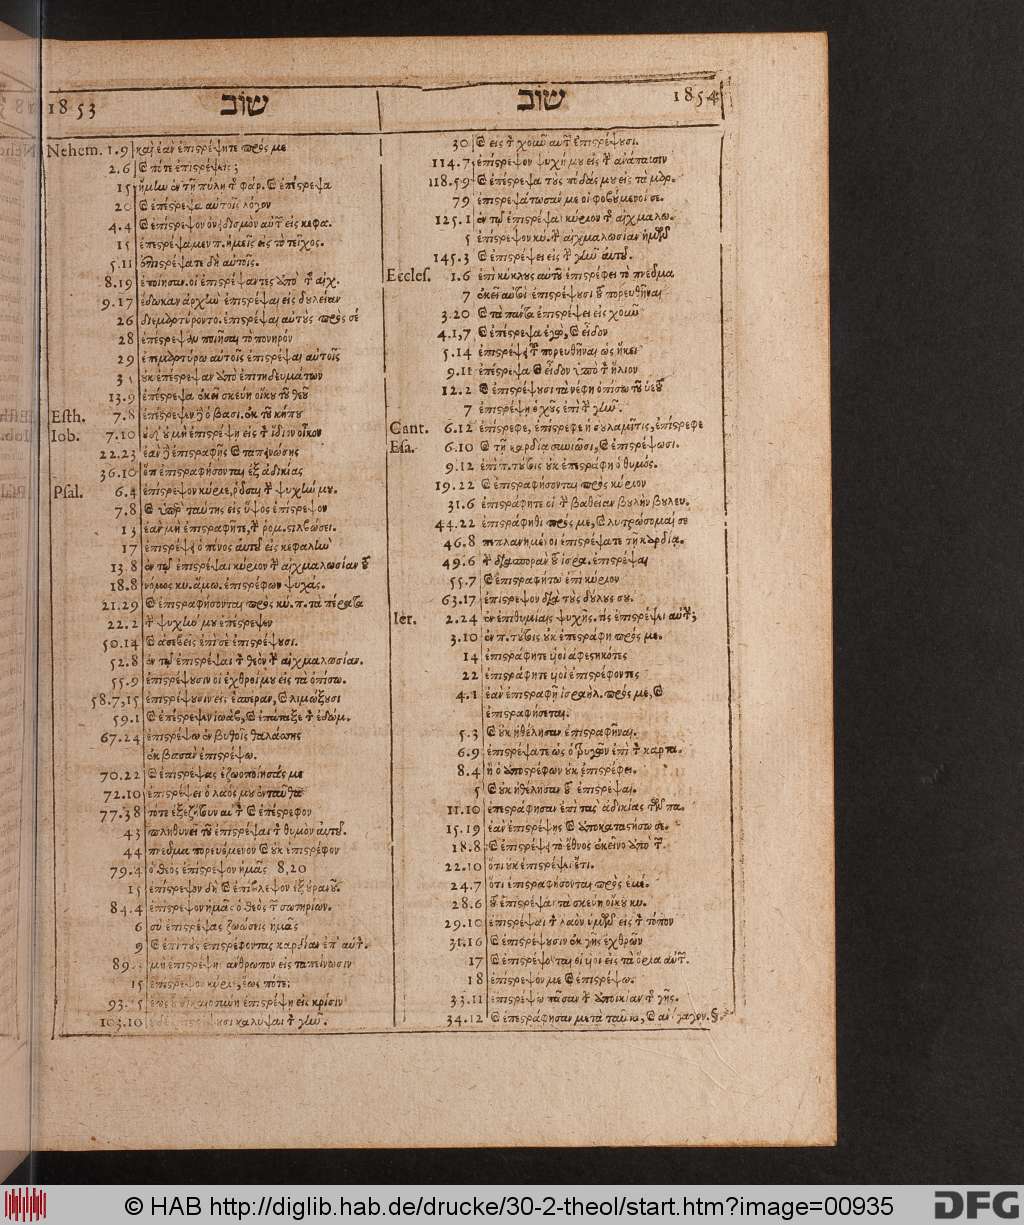 1853 שוב
Nehem. 1.9 καὶ ἐὰν ἐπιστρέψητε πρός με
2.6 καὶ πότε ἐπιστρέψεις;
15 ἤμην ἐν τῇ πύλῃ τ φάρ. καὶ ἐπέστρεψα
20 καὶ ἐπέστρεψα αὐτοῖς λόγον
4.4 καὶ ἐπίστρεψον ὀνειδισμὸν αὐτῶν εἰς κεφα.
15 ἐπεστρέψαμεν π. ἡμεῖς εἰς τὸ τεῖχος.
5.11 ἐπιστρέψατε δὴ αὐτοῖς.
8.19 ἐποίησαν. οἱ ἐπιστρέψαντες ἀπὸ τῆς αἰχ.
9.17 ἔδωκαν ἀρχὴν ἐπιστρέψαι εἰς δουλείαν
26 διεμαρτύροντο. ἐπιστρέψαι αὐτοὺς πρὸς σέ
28 ἐπέστρεψαν ποιῆσαι τὸ πονηρόν
29 ἐπεμαρτύρω αὐτοῖς ἐπιστρέψαι αὐτούς
οὐκ ἐπέστρεψαν ἀπὸ ἐπιτηδευμάτων
13.9 ἐπέστρεψα ἐκεῖ σκεύη οἴκου τοῦ θεοῦ
Esth. 7.8 ἐπέστρεψεν δὲ ὁ βασι. ἐκ τοῦ κήπου
Iob. 7.10 οὐδ' οὐ μὴ ἐπιστρέψῃ εἰς τὸν ἴδιον οἶκον
22.23 ἐὰν δὲ ἐπιστραφῇς καὶ ταπεινώσῃς
36.10 ὅτι ἐπιστραφήσονται ἐξ ἀδικίας
Psal. 6.4 ἐπίστρεψον κύριε, ῥῦσαι τὴν ψυχήν μου.
7.8 καὶ ὑπὲρ ταύτης εἰς ὕψος ἐπίστρεψον
13 ἐὰν μὴ ἐπιστραφῆτε, τὴν ῥομ. στιλβώσει.
17 ἐπιστρέψει ὁ πόνος αὐτοῦ εἰς κεφαλὴν
13.8 ἐν τῷ ἐπιστρέψαι κύριον τὴν αἰχμαλωσίαν τοῦ
18.8 νόμος κυ. ἄμω. ἐπιστρέφων ψυχάς.
21.29 καὶ ἐπιστραφήσονται πρὸς κύ. π. τὰ πέρατα
22.2 τὴν ψυχήν μου ἐπέστρεψεν
50.14 καὶ ἀσεβεῖς ἐπὶ σὲ ἐπιστρέψουσι.
52.8 ἐν τῷ ἐπιστρέψαι τὸν θεὸν τὴν αἰχμαλωσίαν.
55.9 ἐπιστρέψουσιν οἱ ἐχθροί μου εἰς τὰ ὀπίσω.
58.7,15 ἐπιστρέψουσιν εἰς ἑσπέραν, καὶ λιμώξουσι
59.1 καὶ ἐπέστρεψεν ἰωὰβ, καὶ ἐπάταξε τ ἐδώμ.
67.24 ἐπιστρέψω ἐν βυθοῖς θαλάσσης
ἐκ βασὰν ἐπιστρέψω.
70.22 καὶ ἐπιστρέψας ἐζωοποίησάς με
72.10 ἐπιστρέψει ὁ λαός μου ἐνταῦθα
77.38 τότε ἐξεζήτουν αὐτὸν καὶ ἐπέστρεφον
43 πληθυνεῖ τοῦ ἐπιστρέψαι τὸν θυμὸν αὐτοῦ.
44 πνεῦμα πορευόμενον καὶ οὐκ ἐπιστρέφον
79.4 ὁ θεὸς ἐπίστρεψον ἡμᾶς 8,20
15 ἐπίστρεψον δὴ καὶ ἐπίβλεψον ἐξ οὐρανοῦ.
84.4 ἐπίστρεψον ἡμᾶς ὁ θεὸς τῶν σωτηρίων.
6 σὺ ἐπιστρέψας ζωώσεις ἡμᾶς
9 καὶ ἐπὶ τοὺς ἐπιστρέφοντας καρδίαν ἐπ' αὐτ.
89. μὴ ἐπιστρέψῃς ἄνθρωπον εἰς ταπείνωσιν
15 ἐπίστρεψον κύριε, ἕως πότε;
93.15 ἕως οὗ δικαιοσύνη ἐπιστρέψῃ εἰς κρίσιν
103.10 καλύψαι τὴν γῆν.
שוב 1854
30 καὶ εἰς τὸν χοῦν αὐτῶν ἐπιστρέψουσι.
114.7 ἐπίστρεψον ψυχή μου εἰς τὴν ἀνάπαυσιν
118.59 καὶ ἐπέστρεψα τοὺς πόδας μου εἰς τὰ μαρ.
79 ἐπιστρεψάτωσάν με οἱ φοβούμενοί σε.
125.1 ἐν τῷ ἐπιστρέψαι κύριον τὴν αἰχμαλω.
5 ἐπίστρεψον κύ. τὴν αἰχμαλωσίαν ἡμῶν
145.3 καὶ ἐπιστρέψει εἰς τὴν γῆν αὐτοῦ.
Eccles. 1.6 ἐπὶ κύκλους αὐτοῦ ἐπιστρέφει τὸ πνεῦμα
7 ἐκεῖ αὐτοὶ ἐπιστρέψουσι τοῦ πορευθῆναι
3.20 καὶ τὰ πάντα ἐπιστρέψει εἰς χοῦν
4.1,7 καὶ ἐπέστρεψα ἐγὼ, καὶ εἶδον
5.14 ἐπιστρέψει τοῦ πορευθῆναι ὡς ἥκει
9.11 ἐπέστρεψα καὶ εἶδον ὑπὸ τὸν ἥλιον
12.2 καὶ ἐπιστρέψουσι τὰ νέφη ὀπίσω τοῦ ὑετοῦ
7 ἐπιστρέψῃ ὁ χοῦς ἐπὶ τὴν γῆν.
Cant. 6.12 ἐπίστρεφε, ἐπίστρεφε ἡ σουλαμῖτις, ἐπίστρεφε
Esa. 6.10 καὶ τῇ καρδίᾳ συνιῶσι, καὶ ἐπιστρέψωσι.
9.12 ἐπὶ π. τούτοις οὐκ ἐπεστράφη ὁ θυμός.
19.22 καὶ ἐπιστραφήσονται πρὸς κύριον
31.6 ἐπιστράφητε οἱ τὴν βαθεῖαν βουλὴν βουλευ.
44.22 ἐπιστράφηθι πρός με, καὶ λυτρώσομαί σε
46.8 πεπλανημένοι ἐπιστρέψατε τῇ καρδίᾳ.
49.6 τὴν διασπορὰν τοῦ ἰσρα. ἐπιστρέψαι
55.7 καὶ ἐπιστραφήτω ἐπὶ κύριον
63.17 ἐπίστρεψον διὰ τοὺς δούλους σου.
Ier. 2.24 ἐν ἐπιθυμίαις ψυχῆς. τίς ἐπιστρέψει αὐτήν;
3.10 ἐν π. τούτοις οὐκ ἐπεστράφη πρός με.
14 ἐπιστράφητε υἱοὶ ἀφεστηκότες
22 ἐπιστράφητε υἱοὶ ἐπιστρέφοντες
4.1 ἐὰν ἐπιστραφῇ ἰσραήλ. πρός με, καὶ
ἐπιστραφήσεται.
5.3 καὶ οὐκ ἠθέλησαν ἐπιστραφῆναι.
6.9 ἐπιστρέψατε ὡς ὁ τρυγῶν ἐπὶ τὸν καρτα.
8.4 ἢ ὁ ἀποστρέφων οὐκ ἐπιστρέφει.
5 καὶ οὐκ ἠθέλησαν τοῦ ἐπιστρέψαι.
11.10 ἐπεστράφησαν ἐπὶ τὰς ἀδικίας τῶν πα.
15.19 ἐὰν ἐπιστρέψῃς καὶ ἀποκαταστήσω σε.
18.8 καὶ ἐπιστρέψῃ τὸ ἔθνος ἐκεῖνο ἀπὸ τῶν.
22.10 ὅτι οὐκ ἐπιστρέψει ἔτι.
24.7 ὅτι ἐπιστραφήσονται πρὸς ἐμέ.
28.6 τοῦ ἐπιστρέψαι τὰ σκεύη οἴκου κυ.
29.10 ἐπιστρέψαι τὸν λαὸν ὑμῶν εἰς τὸν τόπον
31.16 καὶ ἐπιστρέψουσιν ἐκ γῆς ἐχθρῶν
17 καὶ ἐπιστρέψονται οἱ υἱοὶ εἰς τὰ ὅρια αὐτῶν.
18 ἐπίστρεψόν με καὶ ἐπιστρέψω.
33.11 ἐπιστρέψω πᾶσαν τὴν ἀποικίαν τῆς γῆς.
34.12 καὶ ἐπεστράφησαν μετὰ ταῦτα, καὶ
© HAB http://diglib.hab.de/drucke/30-2-theol/start.htm?image=00935
DFG